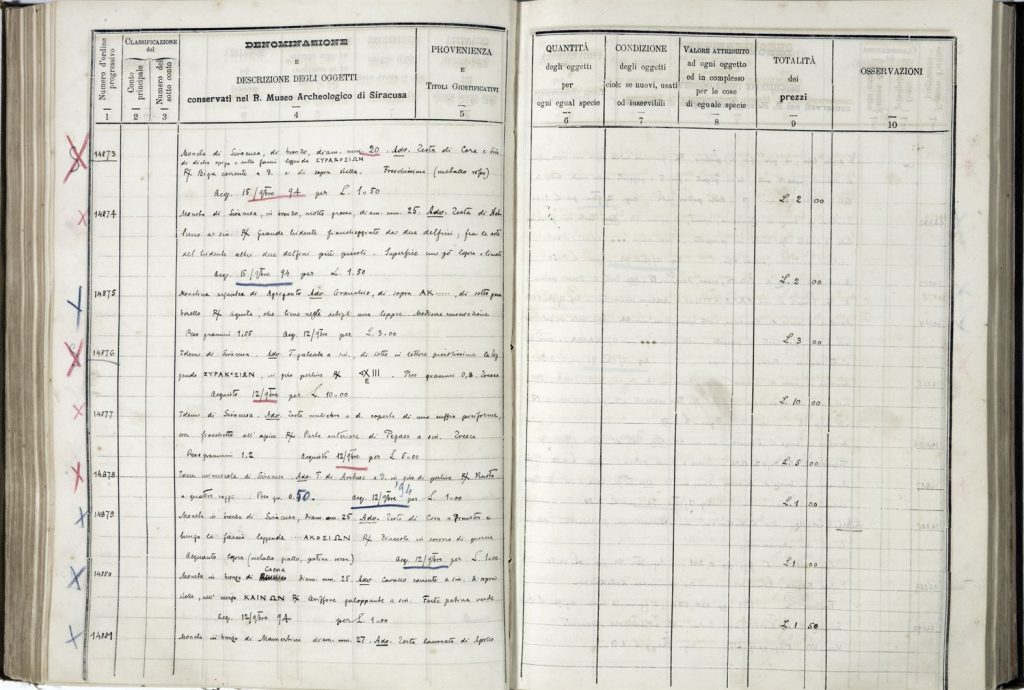 Numero d'ordine progressivo
Classificazione del
Conto principale
Numero del sotto conto
DENOMINAZIONE
E
DESCRIZIONE DEGLI OGGETTI
conservati nel R. Museo Archeologico di Siracusa
PROVENIENZA
E
Titoli Giustificativi
1 2 3 4 5
14873 Moneta di Siracusa, di bronzo, diam. mm. 20. Adv. Testa di Cora e sin.
di dietro spiga e sulla fascia leggenda ΣΥΡΑΚΟΣΙΩΝ
R/ Biga corrente a d. e di sopra stella. Freschissima (metallo rosso)
Acq. 15/9bre 94 per L. 1.50
14874 Moneta di Siracusa, in bronzo, molto grossa, diam. mm. 25. Adv. Testa di
a sin. R/ grande tridente fiancheggiato da due delfini, fra le aste
del tridente altri due delfini più piccoli. Superficie un pò logora
Acq. 15/9bre 94 per L. 1.50
14875 Monetina argentea di Agrigento Adv Granchio, di sopra ΑΚ......, di sotto
R/ aquila, che tiene negli artigli una lepre. Mediocre conservazione
Peso grammi 1,05 Acq. 12/9bre per L. 3.00
14876 Idem di Siracusa. Adv. T. galeata a sin., di sotto in lettere piccolissime la leg
genda ΣΥΡΑΚΟΣΙΩΝ, in giro perline R/ XIII. Peso grammi 0,8.
Acquisto 12/9bre per L. 10.00
14877 Idem di Siracusa. Adv. Testa muliebre a d. coperta di una cuffia
con fiocchetto all'apice R/ Parte anteriore di Pegaso a sin.
Peso grammi 1.2 Acquisto 12/9bre per L. 5.00
14878 Idem minuscola di Siracusa. Adv. T. di Arethusa a d. in giro di perline R/ Ruota
a quattro raggi. Peso gr. 0.50. Acq. 12/9bre '94 per L. 1.00
14879 Moneta in bronzo di Siracusa, diam. mm. 25. Adv. Testa di Cora a sinistra e
lungo la fascia leggenda ...ΑΚΟΣΙΩΝ R/ in corona di quercia
Alquanto logora (metallo giallo, patina rossa) Acq. 12/9bre per L. 1.00
14880 Moneta in bronzo di Caena diam. mm. 25. Adv Cavallo corrente a sin. di sopra
stella, nell'esergo ΚΑΙΝΩΝ R/ Griffone galoppante a sin. Forte patina verde
Acq. 12/9bre 94 per L. 1.00
14881 Moneta in bronzo di Mamertini diam. mm. 27. Adv. Testa laureata di Apollo
QUANTITÀ
degli oggetti
per
ogni egual specie
CONDIZIONE
degli oggetti
cioè: se nuovi, usati
od inservibili
Valore attribuito
ad ogni oggetto
ed in complesso
per le cose
di eguale specie
TOTALITÀ
dei
prezzi
OSSERVAZIONI
6 7 8 9 10
L. 2 00
L. 2 00
L. 3 00
L. 10 00
L. 5 00
L. 1 00
L. 1 00
L. 1 50